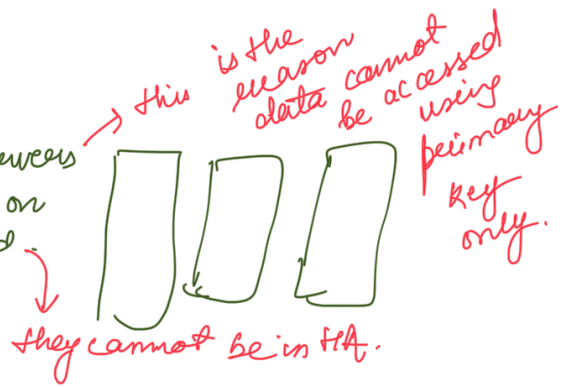 this is the
reason
data cannot
be accessed
using
primary
key
only.
on
they cannot be in HA.